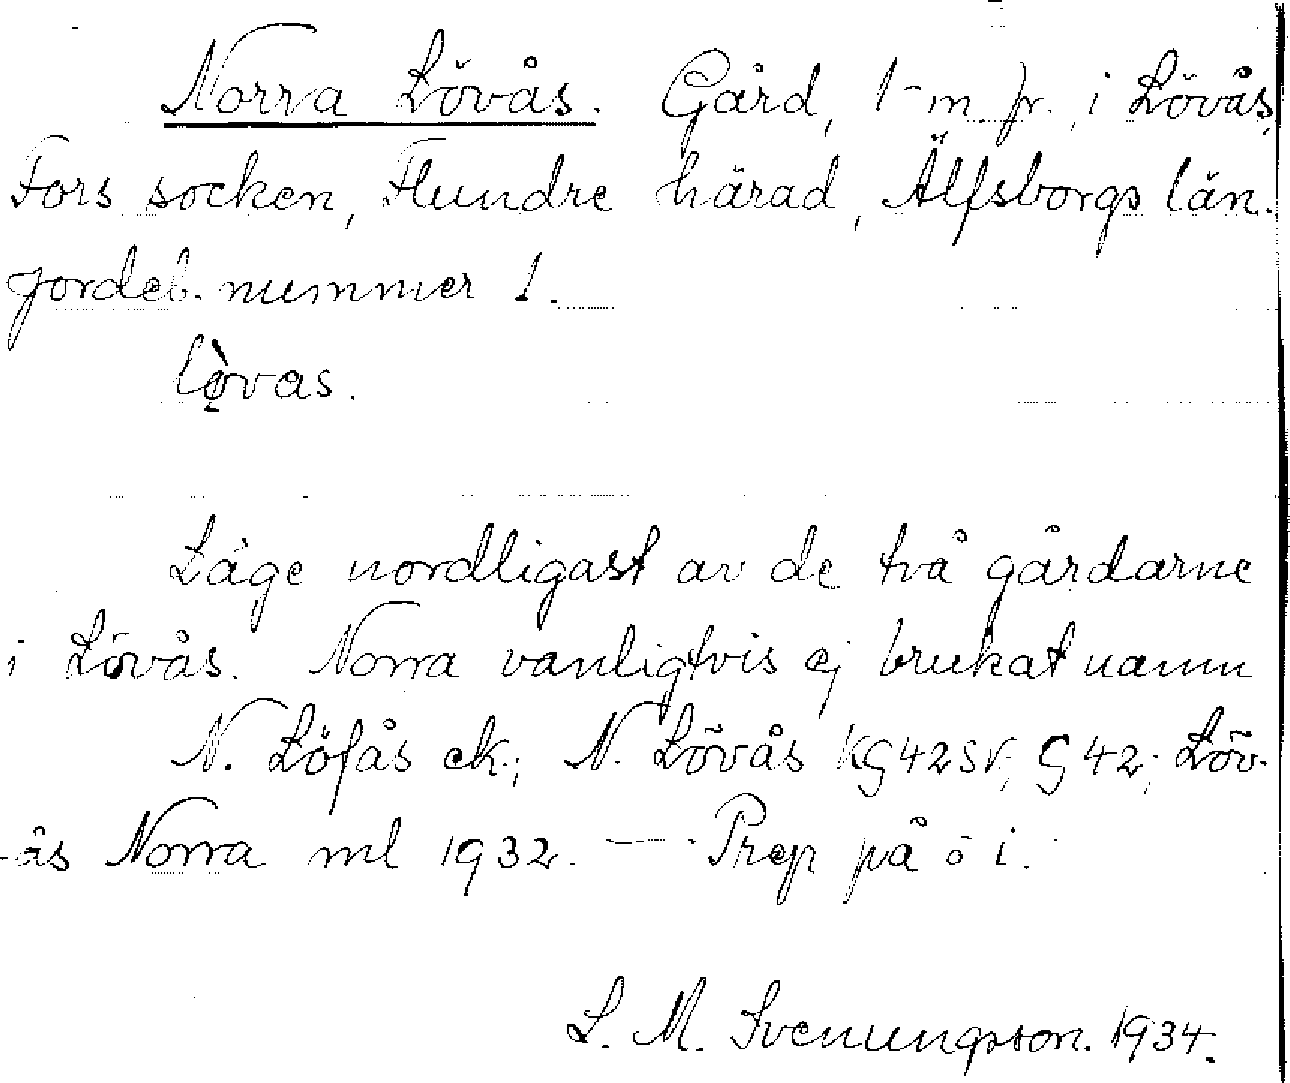 Norra Lövås. Gård, 1 m fr., i Lövås,
Fors socken, Flundre härad, Älfsborgs län.
Jordeb. nummer 1.
lǫ̀vas.
Läge nordligast av de två gårdarne
i Lövås. Norra vanligtvis ej brukat namn
N. Löfås ek.; N. Lövås KG42SV; G42; Löv-
ås Norra ml 1932. — Prep på o i.
L. M. Svenungsson. 1934.